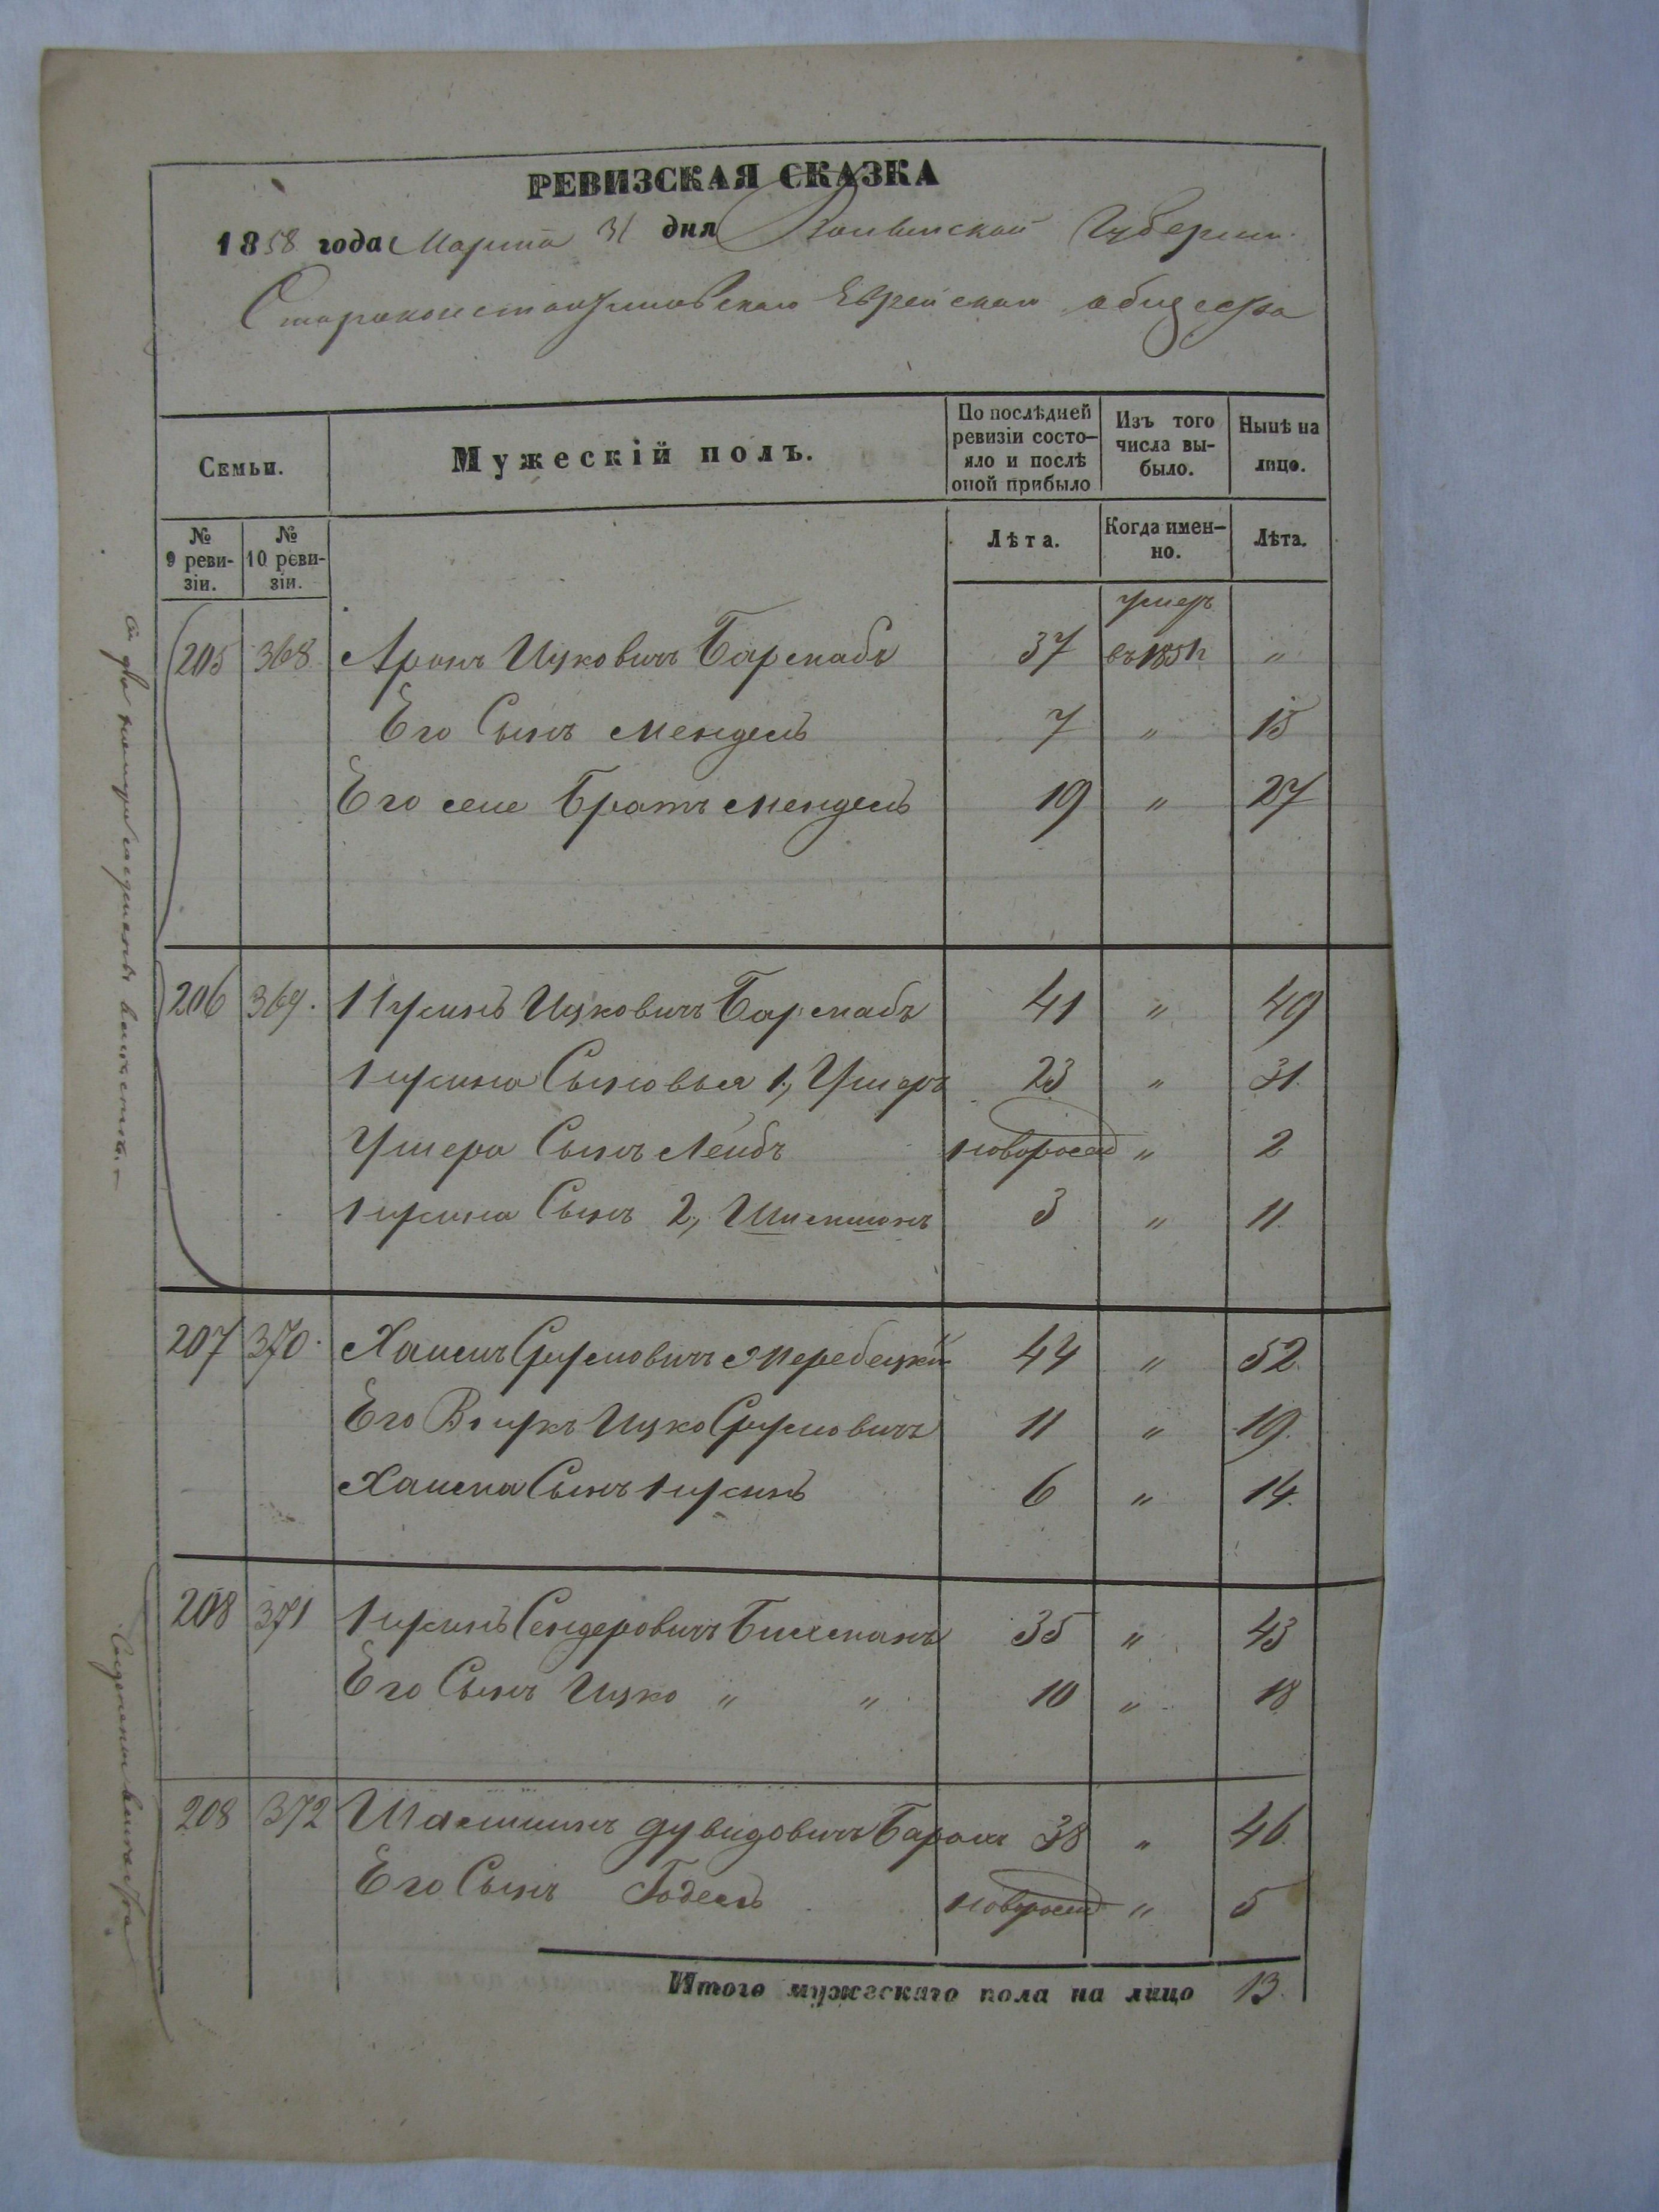 РЕВИЗСКАЯ СКАЗКА
1858 года Марта 31 дня Волынской Губернии
Староконстантиновскаго Еврейскаго общества
Семьи.
Мужескій полъ.
По послѣдней ревизіи состо-яло и послѣ оной прибыло
Изъ того числа вы-было.
Нынѣ на лицо.
№ 9 реви-зіи.
№ 10 реви-зіи.
Лѣта.
Когда имен-но.
Лѣта.
умеръ
205 368 Аронъ Ицковичъ Барснабъ 37 въ 185 "
Его Сынъ Мендель 7 " 15
Его Братъ Мендель 19 " 27
206 369. Нусинъ Ицковичъ Барснабъ 41 " 49
Нусина Сыновья 1, Ушеръ 23 " 31.
Ушера Сынъ Лейбъ новорожд " 2
Нусина Сынъ 2, 3 " 11.
207 370. Хаимъ Сруловичъ Меребецкій 44 " 52.
Его Внукъ Ицко Сруловичъ 11 " 19.
Хаима Сынъ Нусинъ 6 " 14.
208 371 Нусинъ Сендеровичъ 35 " 43
Его Сынъ Ицко " " 10 " 18
208 372 Дувидовичъ 38 " 46.
Его Сынъ Годель новорожд " 5
Итого мужескаго пола на лицо 13.